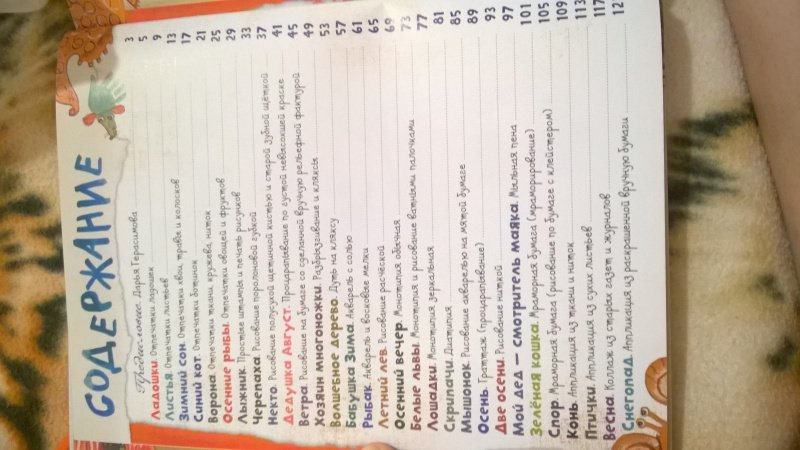 СОДЕРЖАНИЕ
Предисловие. Дарья Герасимова 3
Ладошки. Отпечатки ладошек 5
Листья. Отпечатки листьев 9
Зимний сон. Отпечатки хвои, травы и колосков 13
Синий кот. Отпечатки ботинок 17
Ворона. Отпечатки ткани, кружева, ниток 21
Осенние рыбы. Отпечатки овощей и фруктов 25
Лыжник. Простые штампы и печать рисунков 29
Черепаха. Рисование поролоновой губкой 33
Некто. Рисование полусухой щетинной кистью и старой зубной щёткой 37
Дедушка Август. Процарапывание по густой невысохшей краске 41
Ветра. Рисование на бумаге со сделанной вручную рельефной фактурой 45
Хозяин многоножки. Разбрызгивание и кляксы 49
Волшебное дерево. Дуть на кляксу 53
Бабушка Зима. Акварель с солью 57
Рыбак. Акварель и восковые мелки 61
Летний лев. Рисование расчёской 65
Осенний вечер. Монотипия обычная 69
Белые львы. Монотипия и рисование ватными палочками 73
Лошадки. Монотипия зеркальная 77
Скрипачи. Диатипия 81
Мышонок. Рисование акварелью на мятой бумаге 85
Осень. Граттаж (процарапывание) 89
Две осени. Рисование ниткой 93
Мой дед — смотритель маяка. Мыльная пена 97
Зелёная кошка. Мраморная бумага (мраморирование) 101
Спор. Мраморная бумага (рисование по бумаге с клейстером) 105
Конь. Аппликация из ткани и ниток 109
Птички. Аппликация из сухих листьев 113
Весна. Коллаж из старых газет и журналов 117
Снегопад. Аппликация из раскрашенной вручную бумаги 12